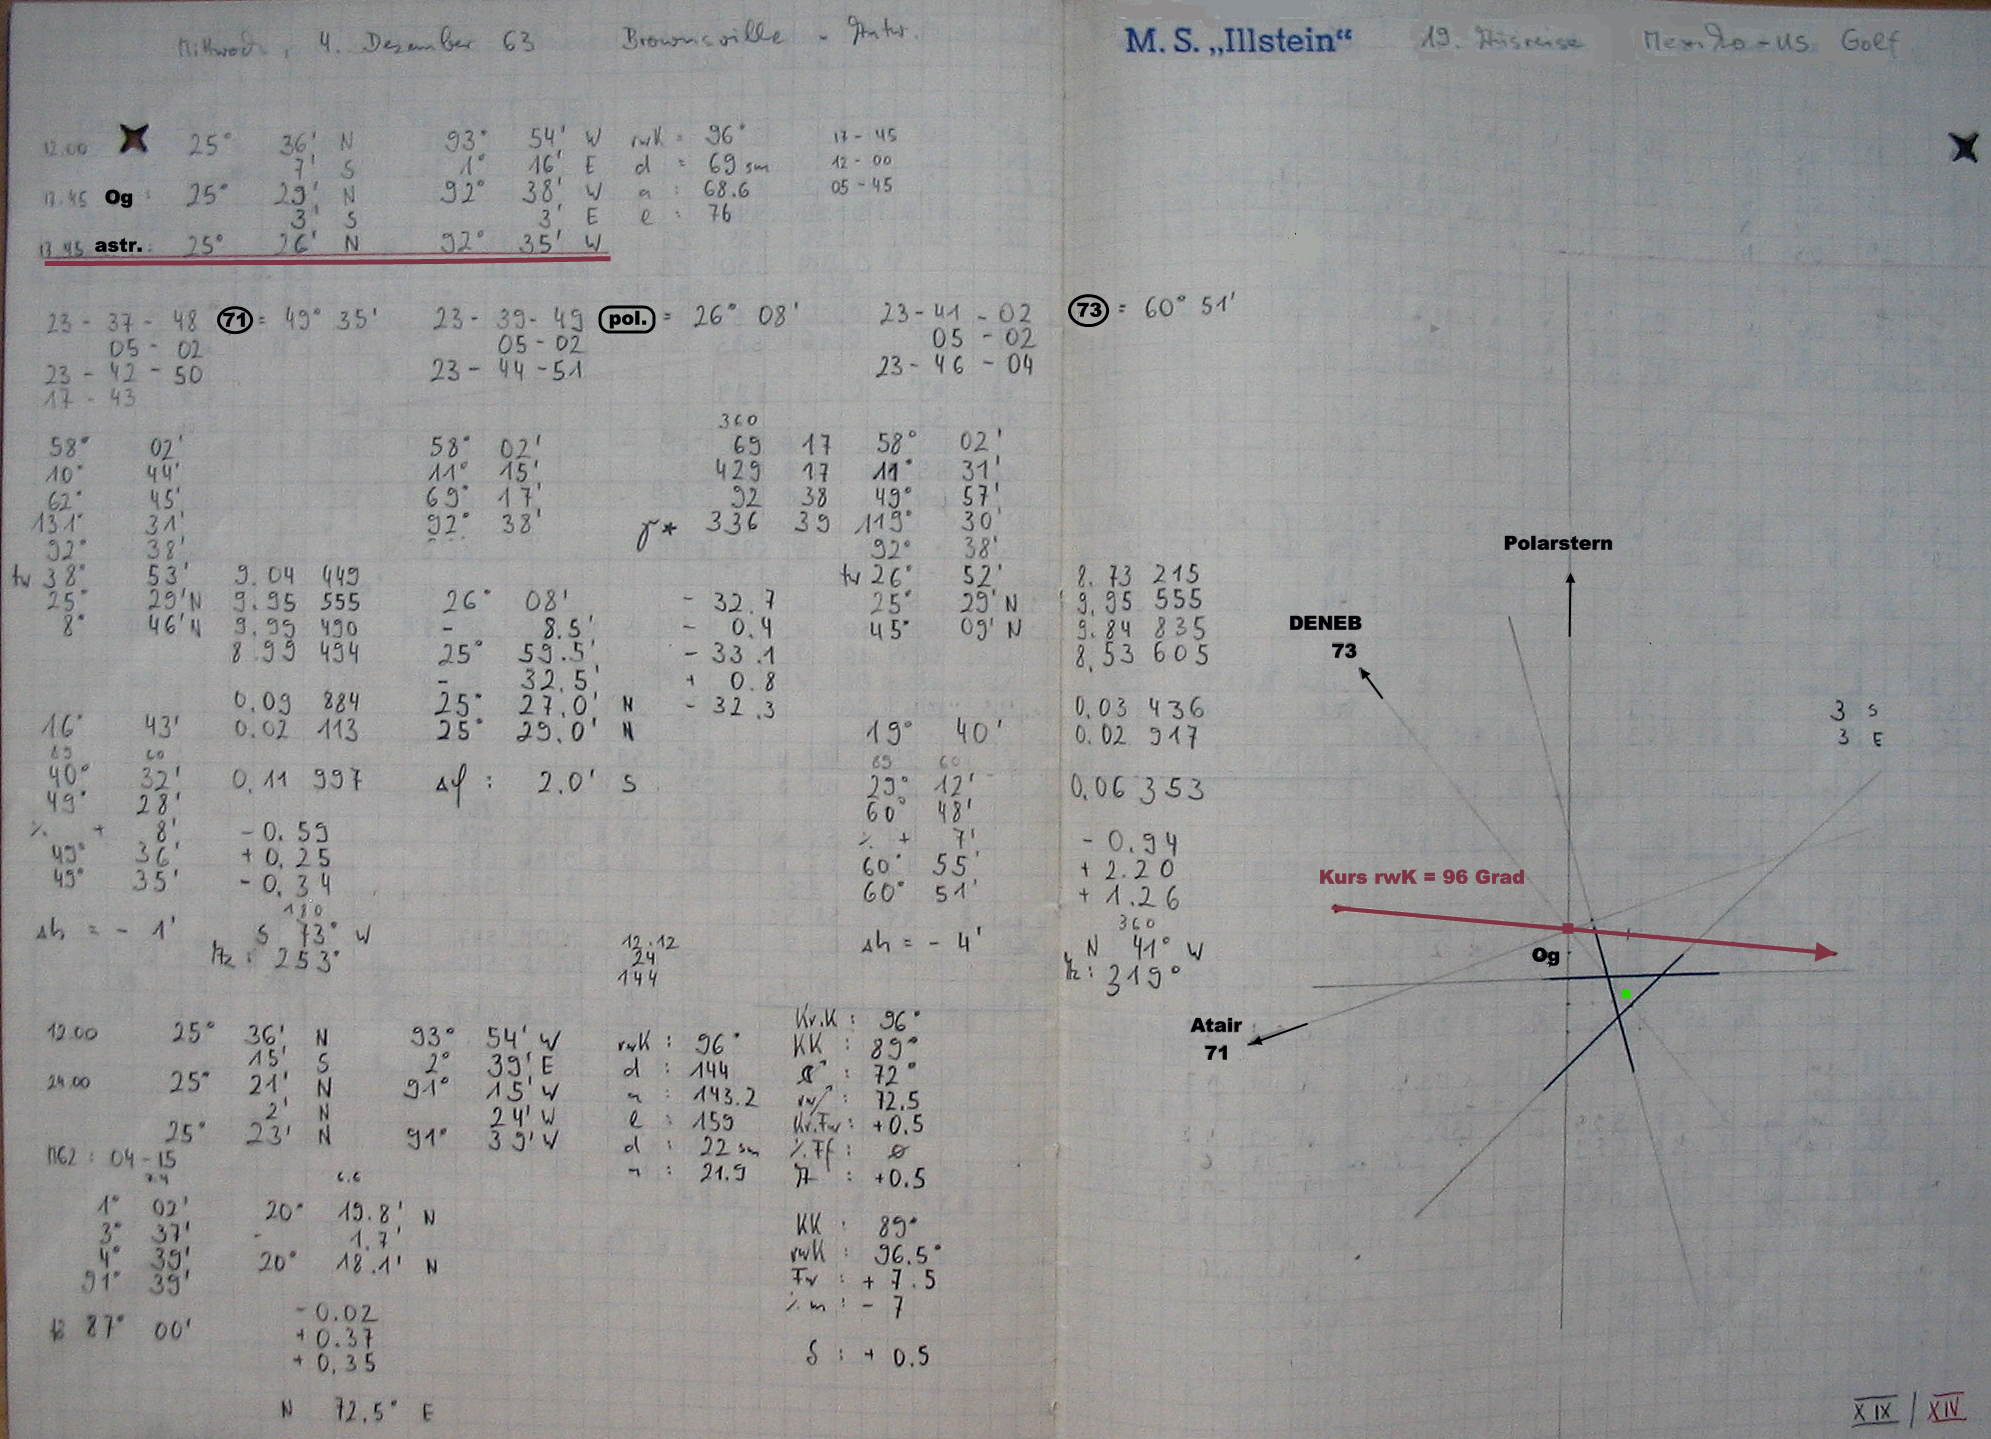 Mittwoch, 4. Dezember 63 Brownsville - Antw.
M.S. „Illstein“ 19. Ausreise Mexiko - US Golf
12.00 25° 36' N 93° 54' W rwK = 96° 17 - 45
7' S 1° 16' E d = 69 sm 12 - 00
17.45 Og : 25° 29' N 92° 38' W a : 68.6 05 - 45
3' S 3' E l : 76
17.45 astr. 25° 26' N 92° 35' W
23 - 37 - 48 71 = 49° 35' 23 - 39 - 49 pol. = 26° 08' 23 - 41 - 02 73 = 60° 51'
05 - 02 05 - 02 05 - 02
23 - 42 - 50 23 - 44 - 51 23 - 46 - 04
17 - 43
360
58° 02' 58° 02' 69 17 58° 02'
10° 44' 11° 15' 429 17 11° 31'
62° 45' 69° 17' 92 38 49° 57'
131° 31' 92° 38' ♈* 336 39 119° 30'
92° 38' 92° 38'
tw 38° 53' 9.04 449 tw 26° 52' 8.73 215
25° 29' N 9.95 555 26° 08' - 32.7 25° 29' N 9.95 555
8° 46' N 9.99 490 - 8.5' - 0.4 45° 09' N 9.84 835
8.99 494 25° 59.5' - 33.1 8.53 605
- 32.5' + 0.8
0.09 884 25° 27.0' N - 32.3 0.03 436
16° 43' 0.02 113 25° 29.0' N 19° 40' 0.02 917
89 60 89 60
40° 32' 0.11 997 Δφ : 2.0' S 29° 12' 0.06 353
49° 28' 60° 48'
% + 8' - 0.59 % + 7' - 0.94
49° 36' + 0.25 60° 55' + 2.20
49° 35' - 0.34 60° 51' + 1.26
180 360
Δh = - 1' S 73° W 12.12 Δh = - 4' N 41° W
Az : 253° 24 Az : 319°
144
12.00 25° 36' N 93° 54' W rwK : 96° Kr.K : 96°
15' S 2° 39' E d : 144 KK : 89°
24.00 25° 21' N 91° 15' W a : 143.2 72°
2' N 24' W l : 159 rw : 72.5
25° 23' N 91° 39' W d : 22 sm Kr.Fw : +0.5
MGZ : 04 - 15 a : 21.9 % Ff : ø
7.4 6.6 : +0.5
1° 02' 20° 19.8' N
3° 37' - 1.7' KK : 89°
4° 39' 20° 18.1' N rwK : 96.5°
91° 39' Fw : + 7.5
- 0.02 % m : - 7
87° 00' + 0.37
+ 0.35 δ : + 0.5
N 72.5° E
Polarstern
DENEB
73
3 S
3 E
Kurs rwK = 96 Grad
Og
Atair
71
XIX / XIV